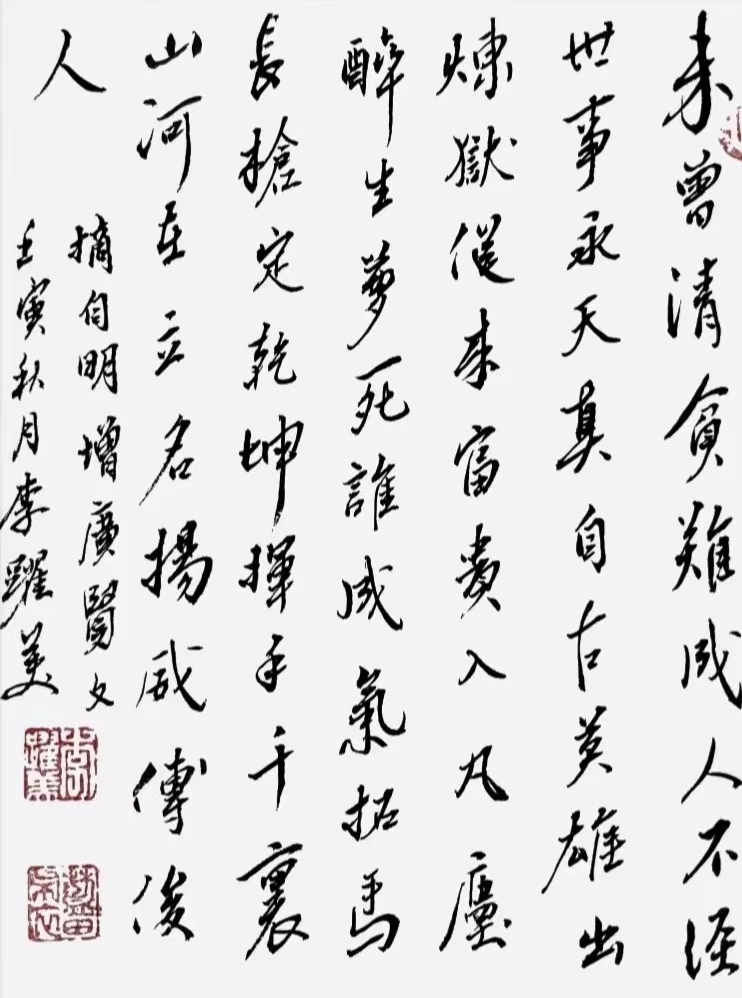 未曾清貧難成人不經
世事永天真自古英雄出
煉獄從來富貴入凡塵
醉生夢死誰成氣拓馬
長槍定乾坤揮手千裏
山河在立名揚威傳後
人
摘自明增廣賢文
壬寅秋月李躍美